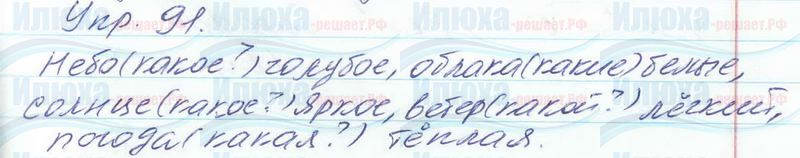 Упр. 91.
Небо(какое?) голубое, облака(какие) белые,
солнце(какое?) яркое, ветер(какой?) лёгкий,
погода(какая?) тёплая.